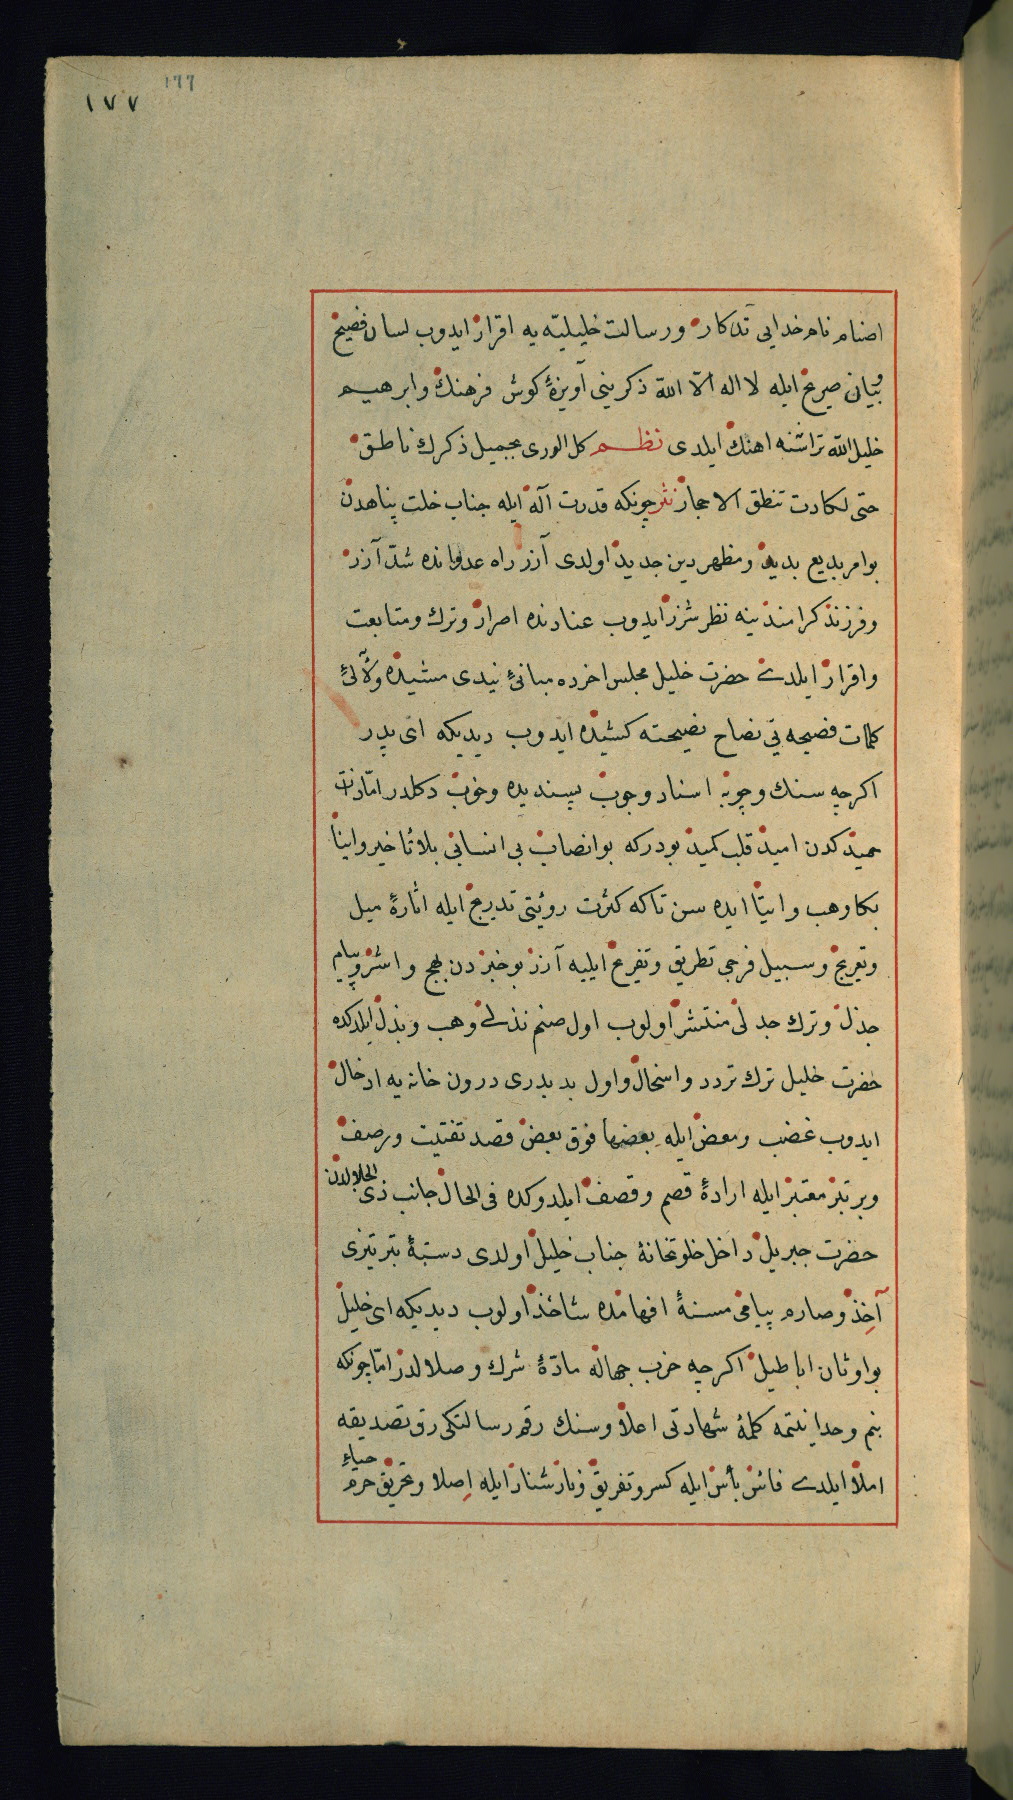 ١٧٧
١٧٧
اصنام نام خدایی تذکار و رسالت خلیلیه یه اقرار ایدوب لسان فصیح
و بیان صریح ایله لا اله الا الله ذکرینی آویزهٔ کوش فرهنك و ابرهیم
خلیل الله تراشنه اهنك ایلدی نظم کل الوری بجمیل ذکرك ناطق
حتی لکادت تنطق الاحجار نثر چونکه قدرت آله ایله جناب خلت پناهدن
بو امر بدیع بدید و مظهر دین جدید اولدی آزر راه عدوانده شد آزر
و فرزند کرامندینه نظر شزر ایدوب عنادنده اصرار و ترك و متابعت
و اقرار ایلدی حضرت خلیل مجلس اخرده مبانئ نیدی مشیده و لآلئ
کلمات فصیحه یی نصاح نصیحته کشیده ایدوب دیدیکه ای پدر
اکرچه سنك و چوبه اسناد وجوب پسندیده و خوب دکلدر اما ذات
حمیدکدن امید قلب کمید بودرکه بو انصاب بی انسانی بلا تأخیر و اینا
بکا وهب و ایتا ایده سن تاکه کثرت رؤیتی تدریج ایله اثارهٔ میل
و تعریج و سبیل فرجی تطریق و تفریع ایلیه آزر بو خبردن بهج و اشر و پیام
جذل و ترك جدلی منتشر اولوب اول صنم نذلی وهب و بذل ایلدکده
حضرت خلیل ترك تردد و اسخال و اول بد بدری درون خانه یه ادخال
ایدوب غضب و معض ایله بعضها فوق بعض قصد تفتیت و رصف
و بر تبر معتبر ایله ارادهٔ قصم و قصف ایلدوکده فی الحال جانب ذی الجلالدن
حضرت جبریل داخل خلوتخانهٔ جناب خلیل اولدی دستهٔ تبر تیزی
آخذ و صارم پیامی مسنهٔ افهامده شاخذ اولوب دیدیکه ای خلیل
بو اوثان اباطیل اکرچه حزب جهاله مادّهٔ شرك و ضلالدر امّا چونکه
بنم وحدانیتمه کلمهٔ شهادتی اعلا و سنك رقم رسالتکی رق تصدیقه
املا ایلدی فائس بأس ایله کسر و تفریق و نار شنار ایله اِصلا و تحریق حرم حیاءِ